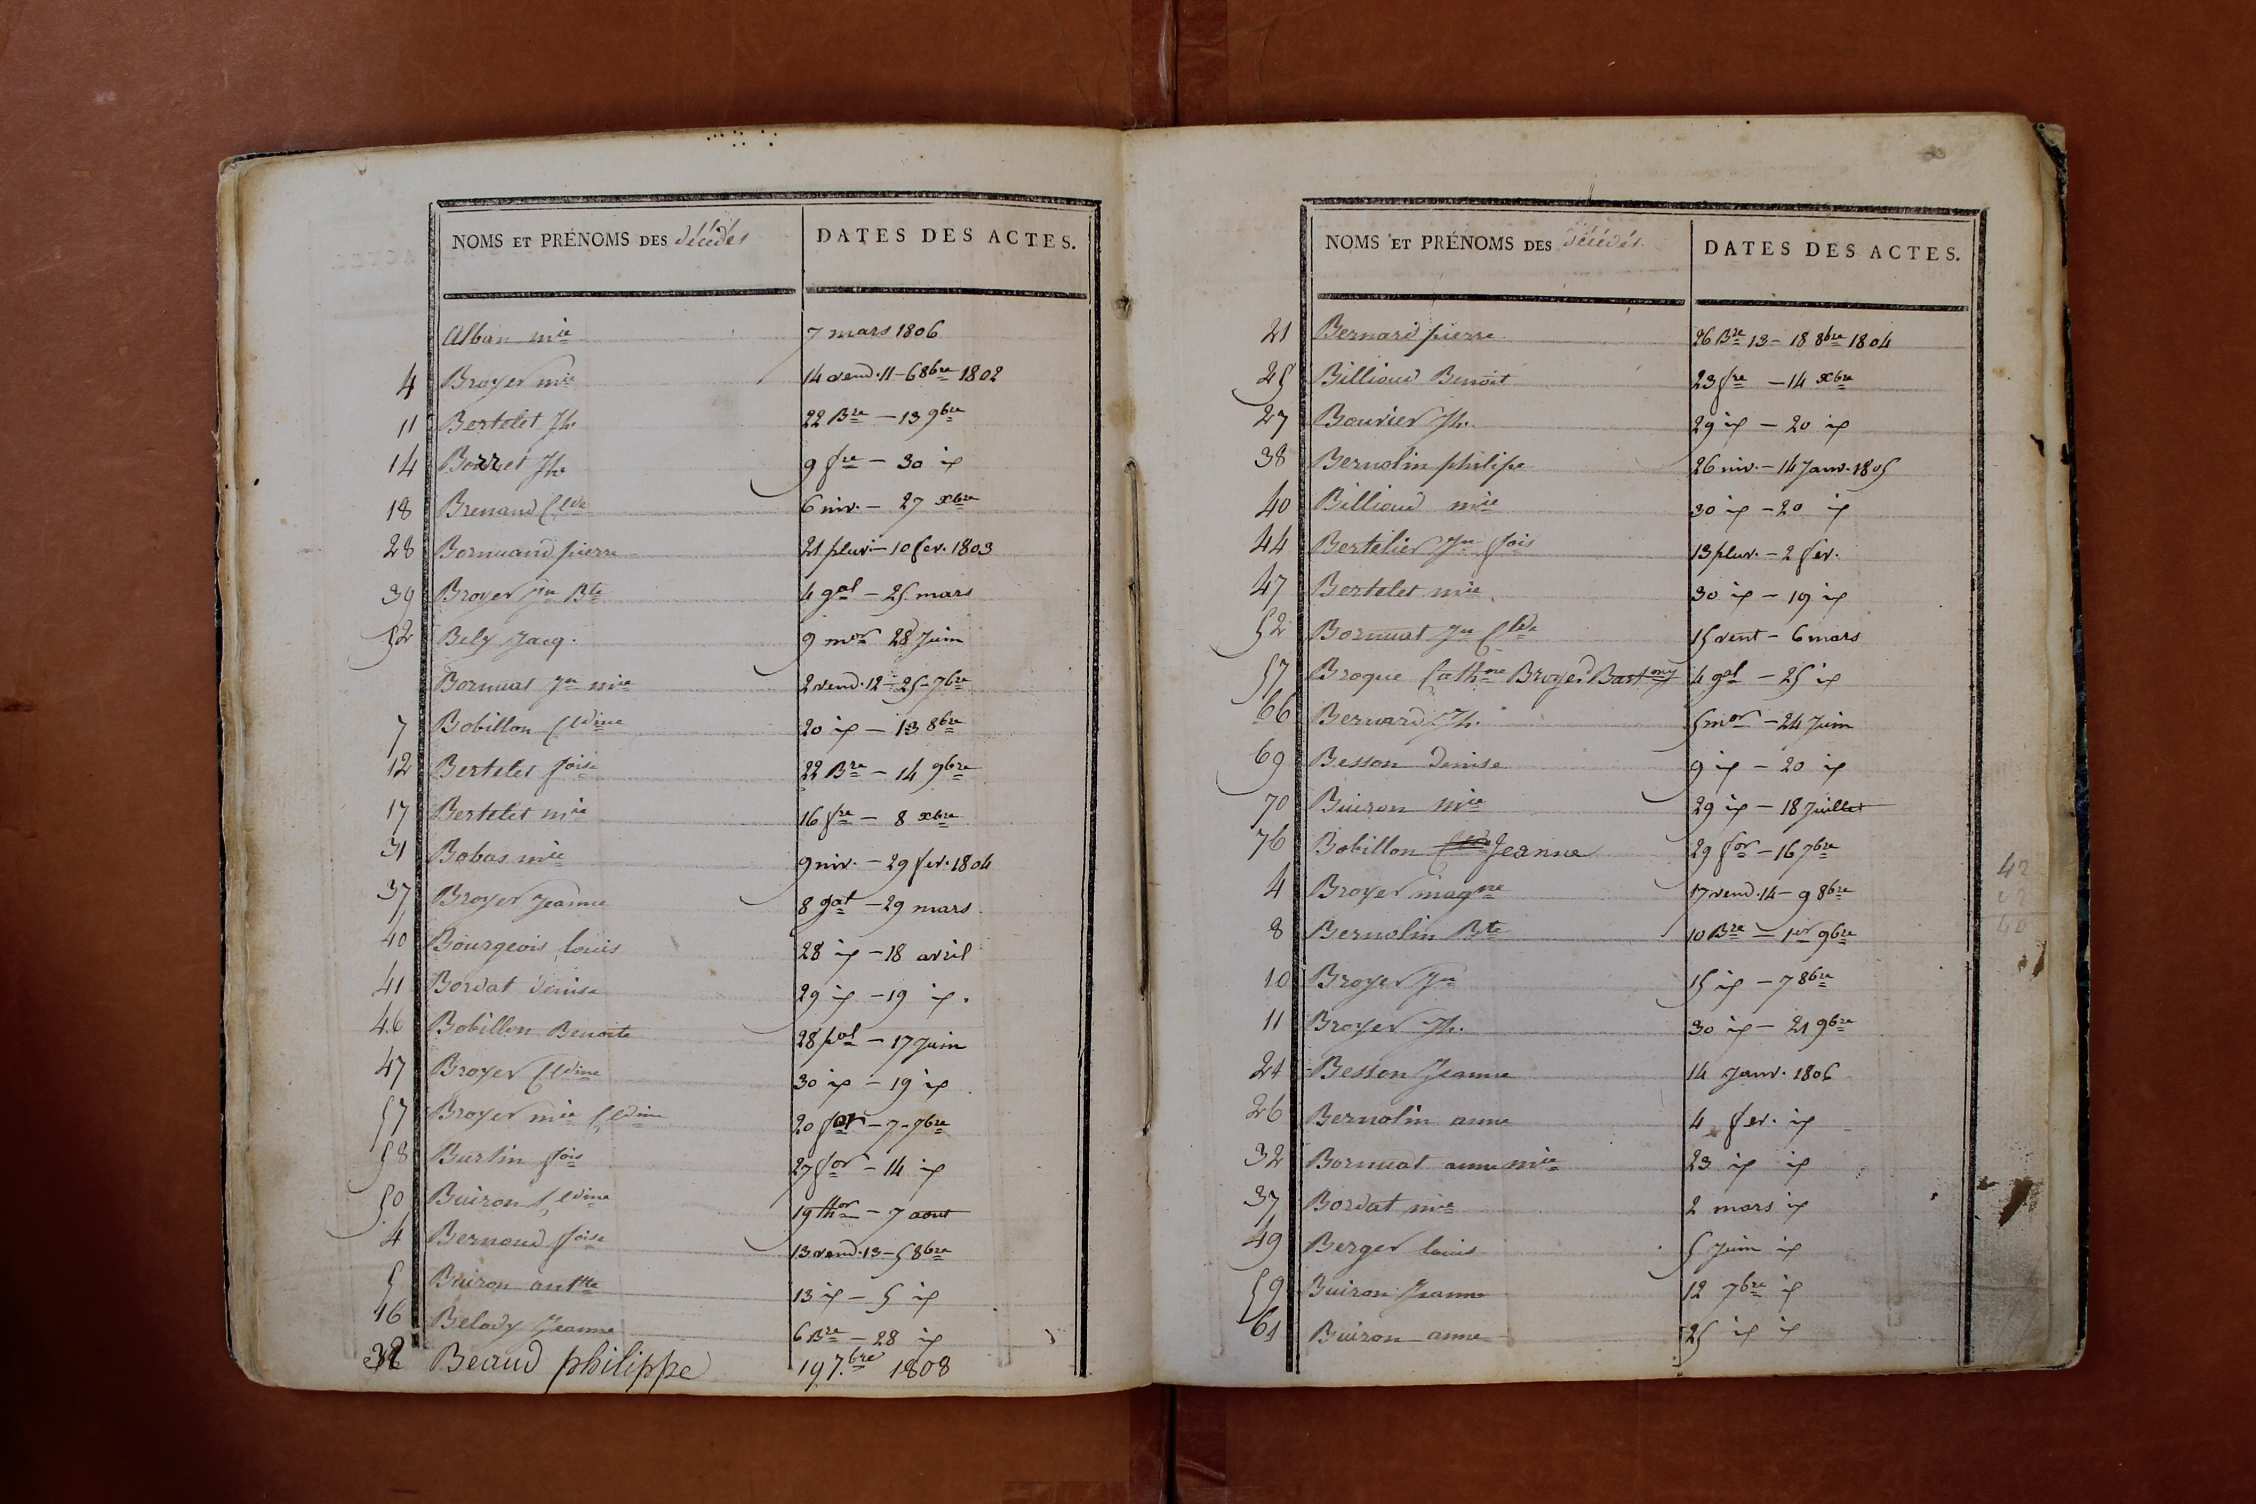 NOMS ET PRÉNOMS DES décédés DATES DES ACTES.
Alban mie 7 mars 1806
4 Broyer mie 14 vend. 11 - 6 8bre 1802
11 Bertelet Jh. 22 Bre - 13 9bre
14 Bonnet Jh. 9 fre - 30 ip
18 Brenaud Clde 6 niv. - 27 xbre
28 Bornuand pierre 21 pluv. - 10 fev. 1803
39 Broyer jn Bte 4 gal - 25 mars
52 Bely Jacq. 9 mor 28 Juin
Bornuat Jn mie 2 vend. 12 - 25 7bre
7 Bobillon Cldine 20 ip - 13 8bre
12 Bertelet foise 22 Bre - 14 9bre
17 Bertelet mie 16 fre - 8 xbre
31 Bobas mie 9 niv. - 29 fev. 1804
37 Broyer Jeanne 8 gal - 29 mars
40 Bourgeois louis 28 ip - 18 avril
41 Bordat denise 29 ip - 19 ip.
46 Bobillon Benoite 28 pal - 17 Juin
47 Broyer Cldine 30 ip - 19 ip
57 Broyer mie Cldine 20 for - 7 - 7bre
58 Burtin fois 27 for - 14 ip
50 Buiron Cldine 19 thor - 7 aout
4 Bernoud foise 13 vend. 13 - 5 8bre
5 Buiron antte 13 ip - 5 ip
16 Belody Jeanne 6 Bre - 28 ip
32 Beaud philippe 19 7.bre 1808
NOMS ET PRÉNOMS DES décédés. DATES DES ACTES.
21 Bernard pierre 26 Bre 13 - 18 8bre 1804
25 Billioud Benoit 23 fre - 14 xbre
27 Bouvier Jh. 29 ip - 20 ip
38 Bernolin philipe 26 niv. - 14 Janv. 1805
40 Billioud mie 30 ip - 20 ip
44 Bertelier Jn fois 13 pluv. - 2 fev.
47 Bertelet mie 30 ip - 19 ip
52 Bornuat Jn Clde 15 vent - 6 mars
57 Broque Cathne Broyer Bartmy 4 gal - 25 ip
66 Bernard Jh. 5 mor - 24 Juin
69 Besson Denise 9 ip - 20 ip
70 Buiron mie 29 ip - 18 Juillet
76 Bobillon Jeanne 29 for - 16 7bre
4 Broyer magne 17 vend. 14 - 9 8bre
8 Bernolin Bte 10 Bre - 1er 9bre
10 Broyer Jn 15 ip - 7 8bre
11 Broyer Jh. 30 ip - 21 9bre
24 Besson Jeanne 14 Janv. 1806
26 Bernolin anne 4 fev. ip
32 Bornuat anne mie 23 ip ip
37 Bordat mie 2 mars ip
49 Berger louis 5 Juin ip
59 Buiron Jeanne 12 7bre ip
61 Buiron anne 25 ip ip
42